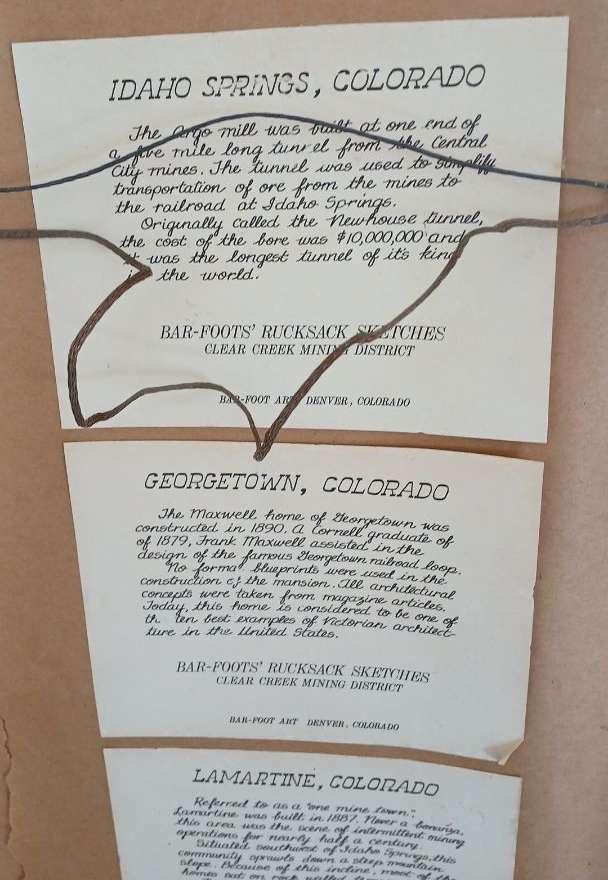 IDAHO SPRINGS, COLORADO
The Argo mill was built at one end of
a five mile long tunnel from the Central
City mines. The tunnel was used to simplify
transportation of ore from the mines to
the railroad at Idaho Springs.
Originally called the Newhouse tunnel,
the cost of the bore was $10,000,000 and
it was the longest tunnel of it's kind
in the world.
BAR-FOOTS' RUCKSACK SKETCHES
CLEAR CREEK MINING DISTRICT
BAR-FOOT ART DENVER, COLORADO
GEORGETOWN, COLORADO
The Maxwell home of Georgetown was
constructed in 1890. A Cornell graduate of
of 1879, Frank Maxwell assisted in the
design of the famous Georgetown railroad loop.
No formal blueprints were used in the
construction of the mansion. All architectural
concepts were taken from magazine articles.
Today, this home is considered to be one of
the ten best examples of Victorian architect-
ture in the United States.
BAR-FOOTS' RUCKSACK SKETCHES
CLEAR CREEK MINING DISTRICT
BAR-FOOT ART DENVER, COLORADO
LAMARTINE, COLORADO
Referred to as a "one mine town",
Lamartine was built in 1887. Never a bonanza,
this area was the scene of intermittent mining
operations for nearly half a century.
Situated southwest of Idaho Springs, this
community sprawls down a steep mountain
slope. Because of this incline, most of the
homes sat on rock walled